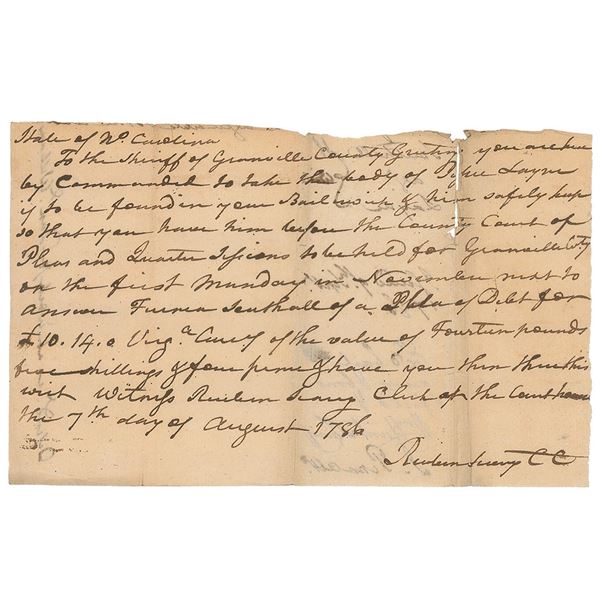 State of No. Carolina
To the Shiriff of Granville County Greting you are here
by Commanded to take the body of Layne
if to be found in your Bailiwick & him safely keep
so that you have him before the County Court of
Pleas and Quarter Sessions to be held for Granville Cty
on the first Munday in November next to
answer Furnea Southall of a Plea of Debt for
£10.14.0 Virga Curry of the value of Fourteen pounds
five shillings & four pence & have you then there this
writ Witness Reuben Searcy Clerk at the Court house
the 7th day of August 1786
Reuben Searcy CC